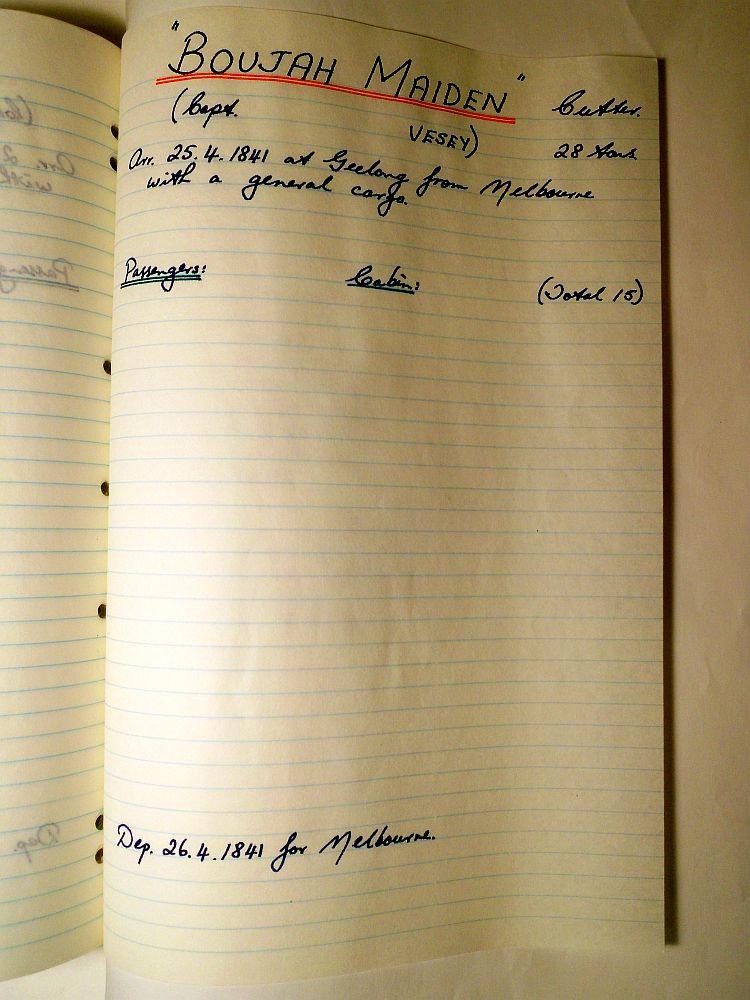 "BOUJAH MAIDEN" Cutter.
(Capt. VESEY) 28 tons
Arr. 25.4.1841 at Geelong from Melbourne
with a general cargo.
Passengers: Cabin: (Total 15)
Dep. 26.4.1841 for Melbourne.